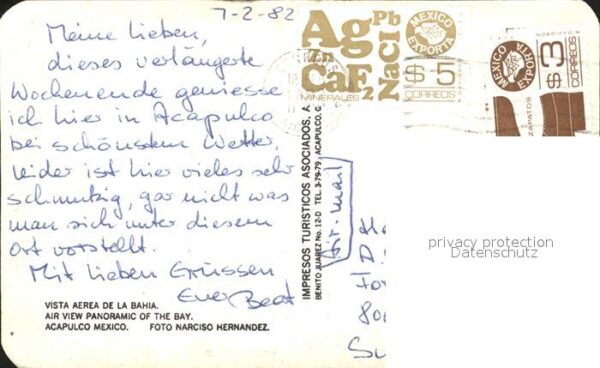 7-2-82
Meine Lieben,
dieses verlängerte
Wochenende geniesse
ich hier in Acapulco
bei schönstem Wetter.
Leider ist hier vieles sehr
schmutzig, gar nicht was
man sich unter diesem
Ort vorstellt.
Mit lieben Grüssen
Euer Beat
VISTA AEREA DE LA BAHIA.
AIR VIEW PANORAMIC OF THE BAY.
ACAPULCO MEXICO. FOTO NARCISO HERNANDEZ.
IMPRESOS TURISTICOS ASOCIADOS, A.
BENITO JUAREZ No. 12-D TEL. 3-79-79 ACAPULCO, G
Air-mail
Ag Pb
Zn NaCl
CaF2
MINERALES
MEXICO
EXPORTA
$5
CORREOS
MEXICO
EXPORTA
$3
CORREOS
ZAPATOS
privacy protection
Datenschutz